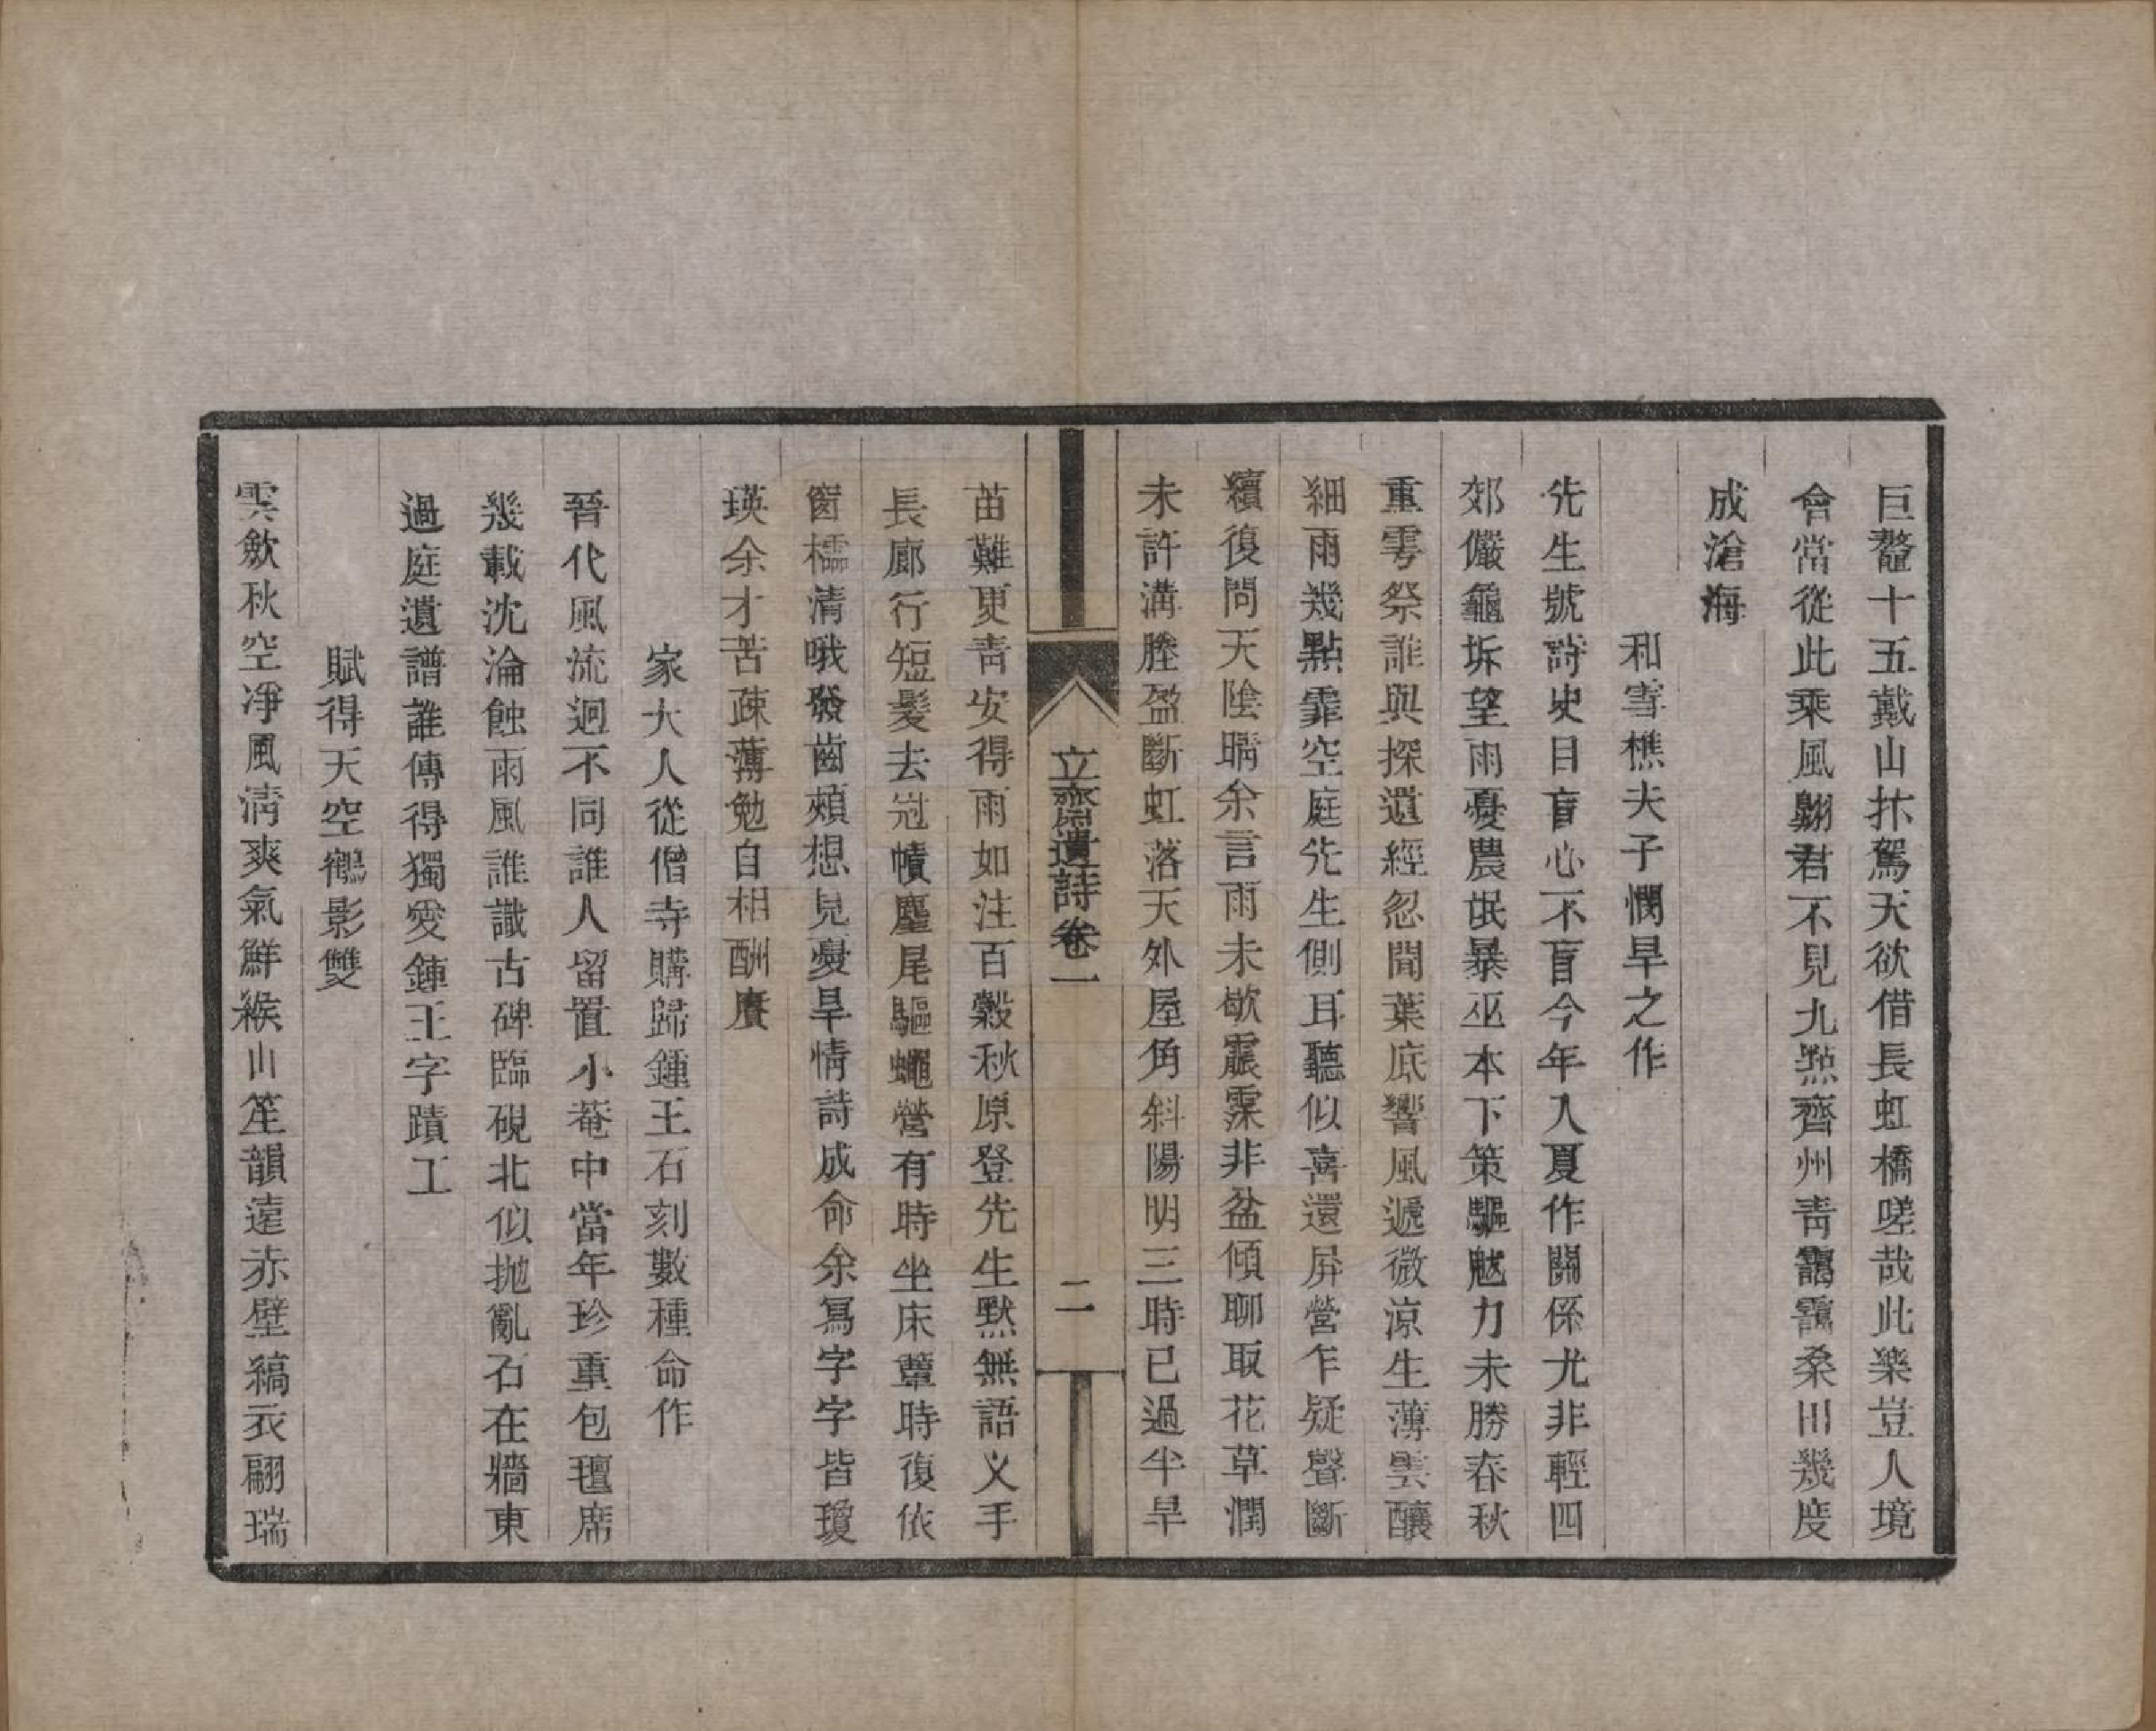 巨鼇十五戴山抃駕天欲借長虹橋嗟哉此樂豈人境
會當從此乘風翺君不見九㸃齊州青靄靄桑田幾度
成滄海
和雪樵夫子憫旱之作
先生號詩史目盲心不盲今年入夏作關係尤非輕四
郊儼龜坼望雨憂農氓暴巫本下策驅魃力未勝春秋
重雩祭誰與探遺經忽聞葉底響風遞微涼生薄雲釀
細雨幾點霏空庭先生側耳聽似喜還屏營乍疑聲斷
續復問天陰晴余言雨未歇霢霂非盆傾聊取花草潤
未許溝塍盈斷虹落天外屋角斜陽明三時已過半旱
立齋遺詩卷一
二
苗難更青安得雨如注百穀秋原登先生默無語义手
長廊行短髮去冠幘麈尾驅蠅營有時坐床蕈時復依
窗櫺清哦發齒頰想見憂旱情詩成命余寫字字皆瓊
瑛余才苦疎薄勉自相酬賡
家大人從僧寺購歸鍾王石刻數種命作
晉代風流迥不同誰人留置小菴中當年珍重包氊席
幾載沈淪蝕雨風誰識古碑臨硯北似拋亂石在牆東
過庭遺譜誰傳得獨愛鍾王字蹟工
賦得天空鶴影雙
雲斂秋空淨風清爽氣鮮緱山笙韻遠赤壁縞衣翩瑞